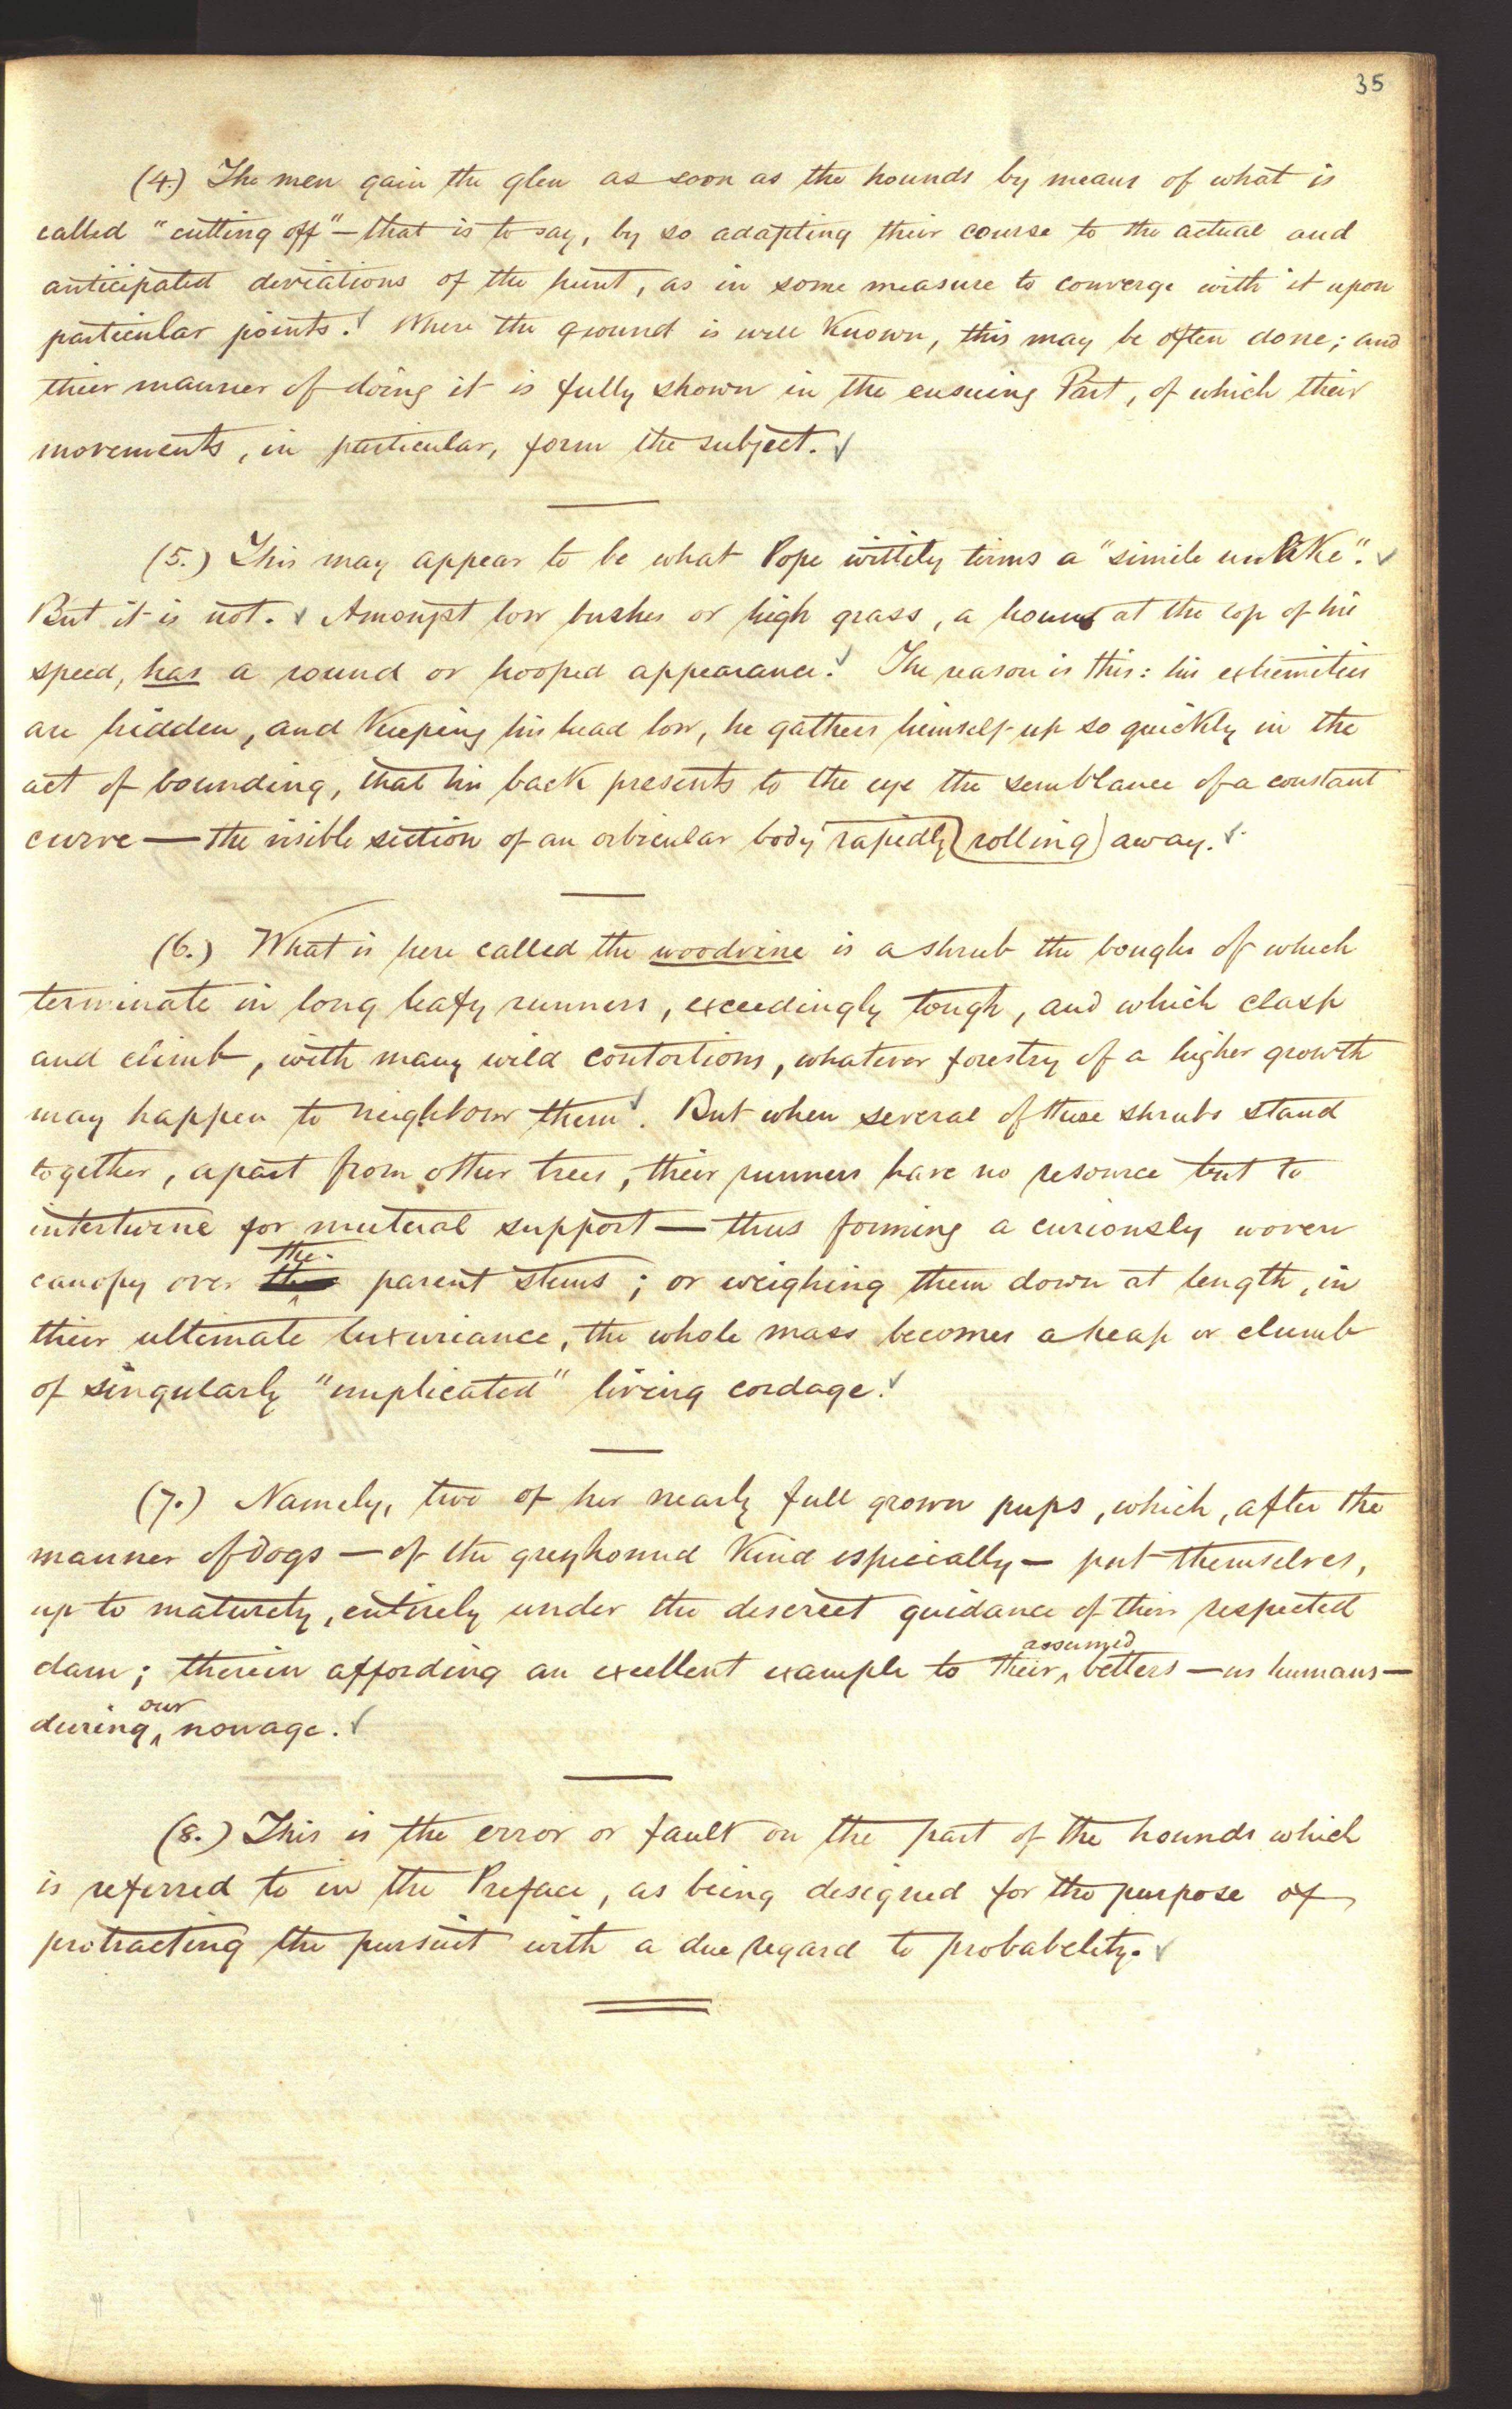 35
(4.) The men gain the glen as soon as the hounds by means of what is
called "cutting off" — that is to say, by so adapting their course to the actual and
anticipated deviations of the hunt, as in some measure to converge with it upon
particular points. Where the ground is well known, this may be often done; and
their manner of doing it is fully shown in the ensuing Part, of which their
movements, in particular, form the subject.
(5.) This may appear to be what Pope wittily terms a "simile unlike".
But it is not. Amongst low bushes or high grass, a hound at the top of his
speed, has a round or hooped appearance. The reason is this: his extremities
are hidden, and keeping his head low, he gathers himself up so quickly in the
act of bounding, that his back presents to the eye the semblance of a constant
curve — the visible section of an orbicular body rapidly (rolling) away.
(6.) What is here called the woodvine is a shrub the boughs of which
terminate in long leafy runners, exceedingly tough, and which clasp
and climb, with many wild contortions, whatever forestry of a higher growth
may happen to neighbour them. But when several of these shrubs stand
together, apart from other trees, their runners have no resource but to
intertwine for mutual support — thus forming a curiously woven
canopy over the parent stems; or weighing them down at length, in
their ultimate luxuriance, the whole mass becomes a heap or clumb
of singularly "implicated" living cordage.
(7.) Namely, two of her nearly full grown pups, which, after the
manner of dogs — of the greyhound kind especially — put themselves,
up to maturety, entirely under the descreet guidance of their respected
dam; therein affording an excellent example to their assumed betters — us humans —
during our nonage.
(8.) This is the error or fault on the part of the hounds which
is referred to in the Preface, as being designed for the purpose of
protracting the pursuit with a due regard to probabelity.